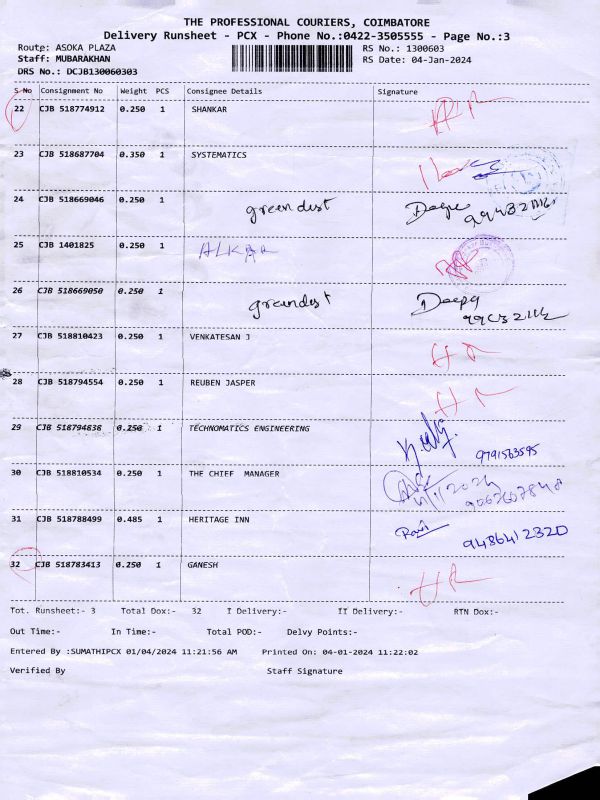 THE PROFESSIONAL COURIERS, COIMBATORE
Delivery Runsheet - PCX - Phone No.:0422-3505555 - Page No.:3
Route: ASOKA PLAZA RS No.: 1300603
Staff: MUBARAKHAN RS Date: 04-Jan-2024
DRS No.: DCJB130060303
S No Consignment No Weight PCS Consignee Details Signature
22 CJB 518774912 0.250 1 SHANKAR
23 CJB 518687704 0.350 1 SYSTEMATICS
24 CJB 518669046 0.250 1 greendist
25 CJB 1401825 0.250 1 ALKBR
26 CJB 518669050 0.250 1 greendist Deepa
27 CJB 518810423 0.250 1 VENKATESAN J
28 CJB 518794554 0.250 1 REUBEN JASPER
29 CJB 518794838 0.250 1 TECHNOMATICS ENGINEERING 9791563595
30 CJB 518810534 0.250 1 THE CHIEF MANAGER
31 CJB 518788499 0.485 1 HERITAGE INN Ravi 9486412320
32 CJB 518783413 0.250 1 GANESH
Tot. Runsheet:- 3 Total Dox:- 32 I Delivery:- II Delivery:- RTN Dox:-
Out Time:- In Time:- Total POD:- Delvy Points:-
Entered By :SUMATHIPCX 01/04/2024 11:21:56 AM Printed On: 04-01-2024 11:22:02
Verified By Staff Signature